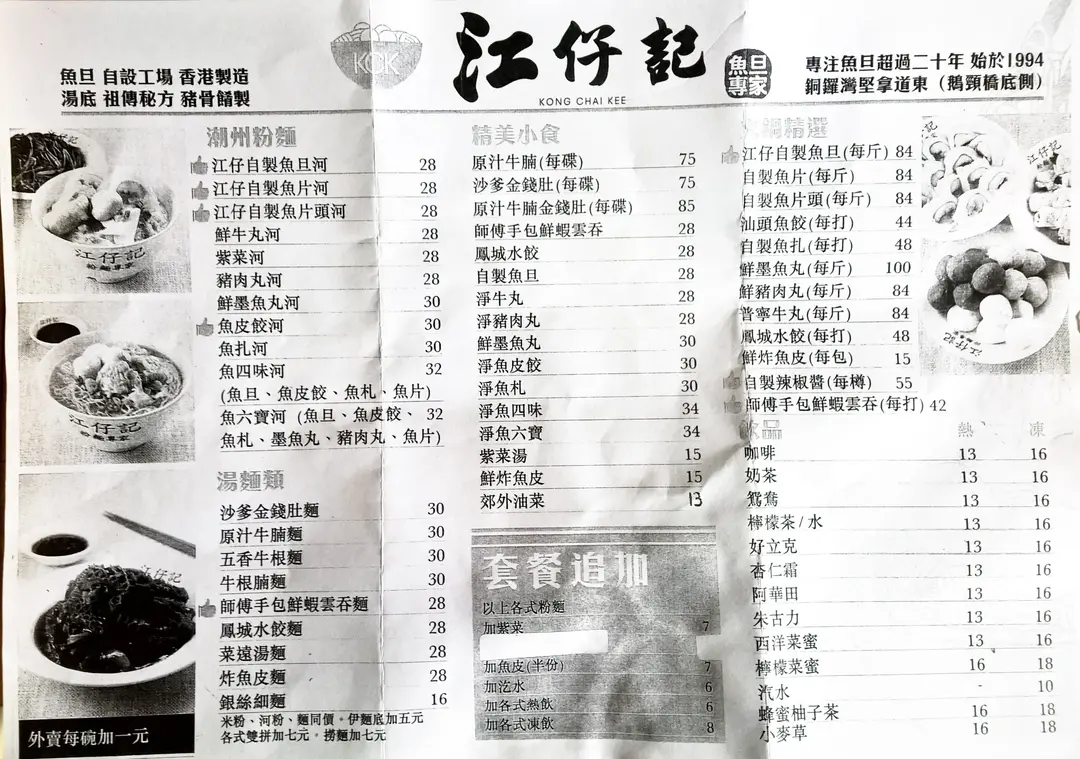 魚旦 自設工場 香港製造
湯底 祖傳秘方 豬骨餚製
KCK
江仔記
KONG CHAI KEE
魚旦專家
專注魚旦超過二十年 始於1994
銅鑼灣堅拿道東（鵝頸橋底側）
潮州粉麵
江仔自製魚旦河 28
江仔自製魚片河 28
江仔自製魚片頭河 28
鮮牛丸河 28
紫菜河 28
豬肉丸河 28
鮮墨魚丸河 30
魚皮餃河 30
魚扎河 30
魚四味河 32
(魚旦、魚皮餃、魚札、魚片)
魚六寶河 (魚旦、魚皮餃、 32
魚札、墨魚丸、豬肉丸、魚片)
湯麵類
沙爹金錢肚麵 30
原汁牛腩麵 30
五香牛根麵 30
牛根腩麵 30
師傅手包鮮蝦雲吞麵 28
鳳城水餃麵 28
菜遠湯麵 28
炸魚皮麵 28
銀絲細麵 16
米粉、河粉、麵同價。伊麵底加五元
各式雙拼加七元。撈麵加七元
外賣每碗加一元
精美小食
原汁牛腩(每碟) 75
沙爹金錢肚(每碟) 75
原汁牛腩金錢肚(每碟) 85
師傅手包鮮蝦雲吞 28
鳳城水餃 28
自製魚旦 28
淨牛丸 28
淨豬肉丸 28
鮮墨魚丸 30
淨魚皮餃 30
淨魚札 30
淨魚四味 34
淨魚六寶 34
紫菜湯 15
鮮炸魚皮 15
郊外油菜 13
套餐追加
以上各式粉麵
加紫菜 7
加魚皮(半份) 7
加汔水 6
加各式熱飲 6
加各式凍飲 8
火鍋精選
江仔自製魚旦(每斤) 84
自製魚片(每斤) 84
自製魚片頭(每斤) 84
汕頭魚餃(每打) 44
自製魚扎(每打) 48
鮮墨魚丸(每斤) 100
鮮豬肉丸(每斤) 84
普寧牛丸(每斤) 84
鳳城水餃(每打) 48
鮮炸魚皮(每包) 15
自製辣椒醬(每樽) 55
師傅手包鮮蝦雲吞(每打) 42
飲品 熱 凍
咖啡 13 16
奶茶 13 16
鴛鴦 13 16
檸檬茶/水 13 16
好立克 13 16
杏仁霜 13 16
阿華田 13 16
朱古力 13 16
西洋菜蜜 13 16
檸檬菜蜜 16 18
汽水 - 10
蜂蜜柚子茶 16 18
小麥草 16 18
江仔記
粉麵專家
江仔記
江仔記
江仔記
江仔記